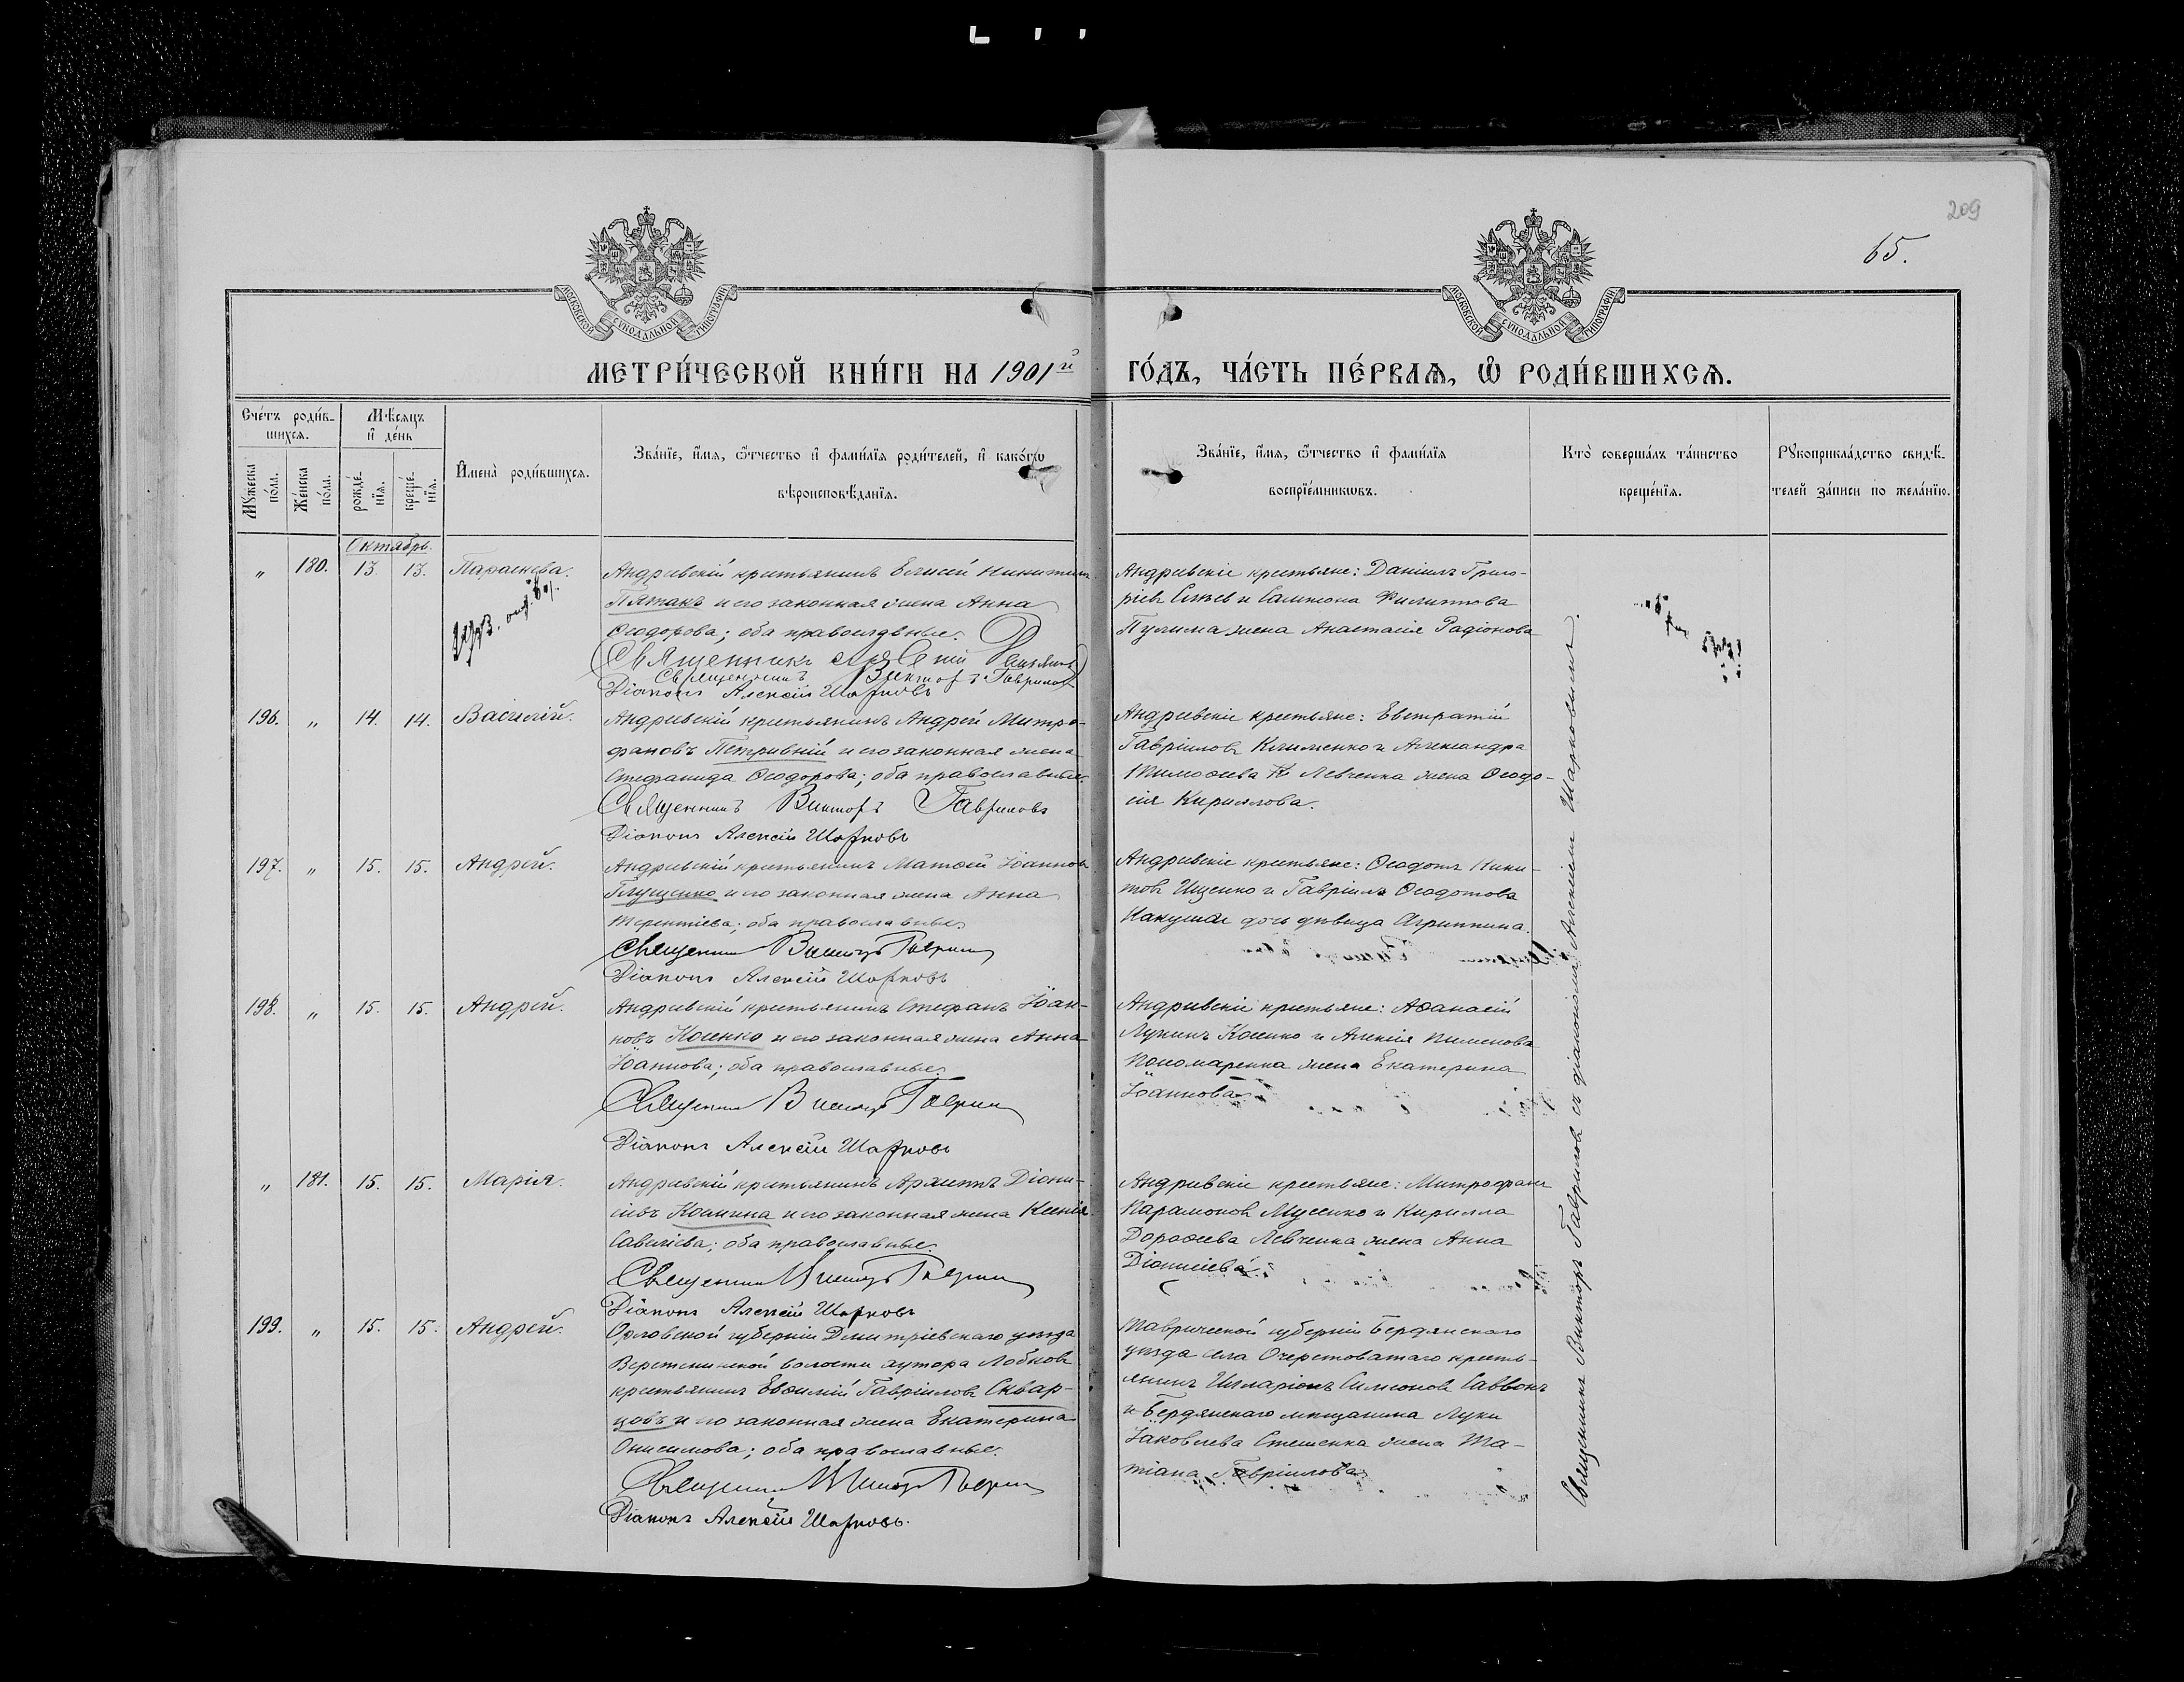 209
65.
МОСКОВСКОЙ СѴНОДАЛЬНОЙ ТИПОГРАФІИ
МОСКОВСКОЙ СѴНОДАЛЬНОЙ ТИПОГРАФІИ
МЕТРИ́ЧЕСКОЙ КНИ́ГИ НА 1901й ГО́ДЪ, ЧА́СТЬ ПЕ́РВАѦ, Ѽ РОДИ́ВШИХСѦ.
Сче́тъ роди́в-
шихсѧ.
Мѣ́сяцъ
и҆ де́нь
Мꙋ́жеска по́ла.
Же́нска по́ла.
рожде́-нїѧ.
креще́-нїѧ.
И҆мена̀ роди́вшихсѧ.
Зва́нїе, и҆́мѧ, ѻ҆́тчество и҆ фами́лїѧ роди́телей, и҆ како́гѡ
вѣроисповѣ́данїѧ.
Зва́нїе, и҆́мѧ, ѻ҆́тчество и҆ фами́лїѧ
воспрїе́мникѡвъ.
Кто̀ соверша́лъ та́инство
креще́нїѧ.
Рꙋкоприкла́дство свидѣ́-
телей за́писи по жела́нїю.
Октябрь.
„ 180. 13. 13. Параскева.
Андревскій крестьянинъ Елисей Никитинъ
Пятакъ и его законная жена Анна
Ѳеодорова; оба православные.
Священникъ
Священникъ Викторъ Гавриловъ
Діаконъ Алексій Шарковъ
Андревскіе крестьяне: Даніилъ Григо-
ріевъ и Самсона Филиппова
Пулима жена Анастасія Радіонова
196. „ 14. 14. Василій.
Андревскій крестьянинъ Андрей Митро-
фановъ Петривній и его законная жена
Стефанида Ѳеодорова; оба православные.
Священникъ Викторъ Гавриловъ
Діаконъ Алексій Шарковъ
Андревскіе крестьяне: Евстратій
Гавріиловъ Клименко и Александра
Тимоѳеева Левченка жена Ѳеодо-
сія Кириллова.
197. „ 15. 15. Андрей.
Андревскій крестьянинъ Матѳей Іоанновъ
Глущенко и его законная жена Анна
Терентіева; оба православные.
Священникъ Викторъ Гавриловъ
Діаконъ Алексій Шарковъ
Андревскіе крестьяне: Ѳеодотъ Ники-
товъ Ищенко и Гавріила Ѳеодотова
Какуша дочь дѣвица Агриппина.
198. „ 15. 15. Андрей.
Андревскій крестьянинъ Стефанъ Іоан-
новъ Косенко и его законная жена Анна
Іоаннова; оба православные.
Священникъ Викторъ Гавриловъ
Діаконъ Алексій Шарковъ
Андревскіе крестьяне: Аѳанасій
Лукинъ Косенко и Алексія Пименова
Пономаренка жена Екатерина
Іоаннова
„ 181. 15. 15. Марія.
Андревскій крестьянинъ Архиппъ Діони-
сіевъ Комлина и его законная жена Ксенія
Савеліева; оба православные.
Священникъ Викторъ Гавриловъ
Діаконъ Алексій Шарковъ
Андревскіе крестьяне: Митрофанъ
Парамоновъ Мусенко и Кирилла
Дороѳеева Левченка жена Анна
Діонисіева
199. „ 15. 15. Андрей.
Орловской губерніи Дмитріевскаго уѣзда
Веретенинской волости хутора Лобковъ
крестьянинъ Евѳимій Гавріиловъ Сквар-
цовъ и его законная жена Екатерина
Онисимова; оба православные.
Священникъ Викторъ Гавриловъ
Діаконъ Алексій Шарковъ.
Таврической губерніи Бердянскаго
уѣзда села Очеретоватаго кресть-
янинъ Илларіонъ Симеоновъ Саввонъ
и Бердянскаго мѣщанина Луки
Іаковлева Стешенка жена Та-
тіана Гавріилова
Священникъ Викторъ Гавриловъ съ діакономъ Алексіемъ Шарковымъ.